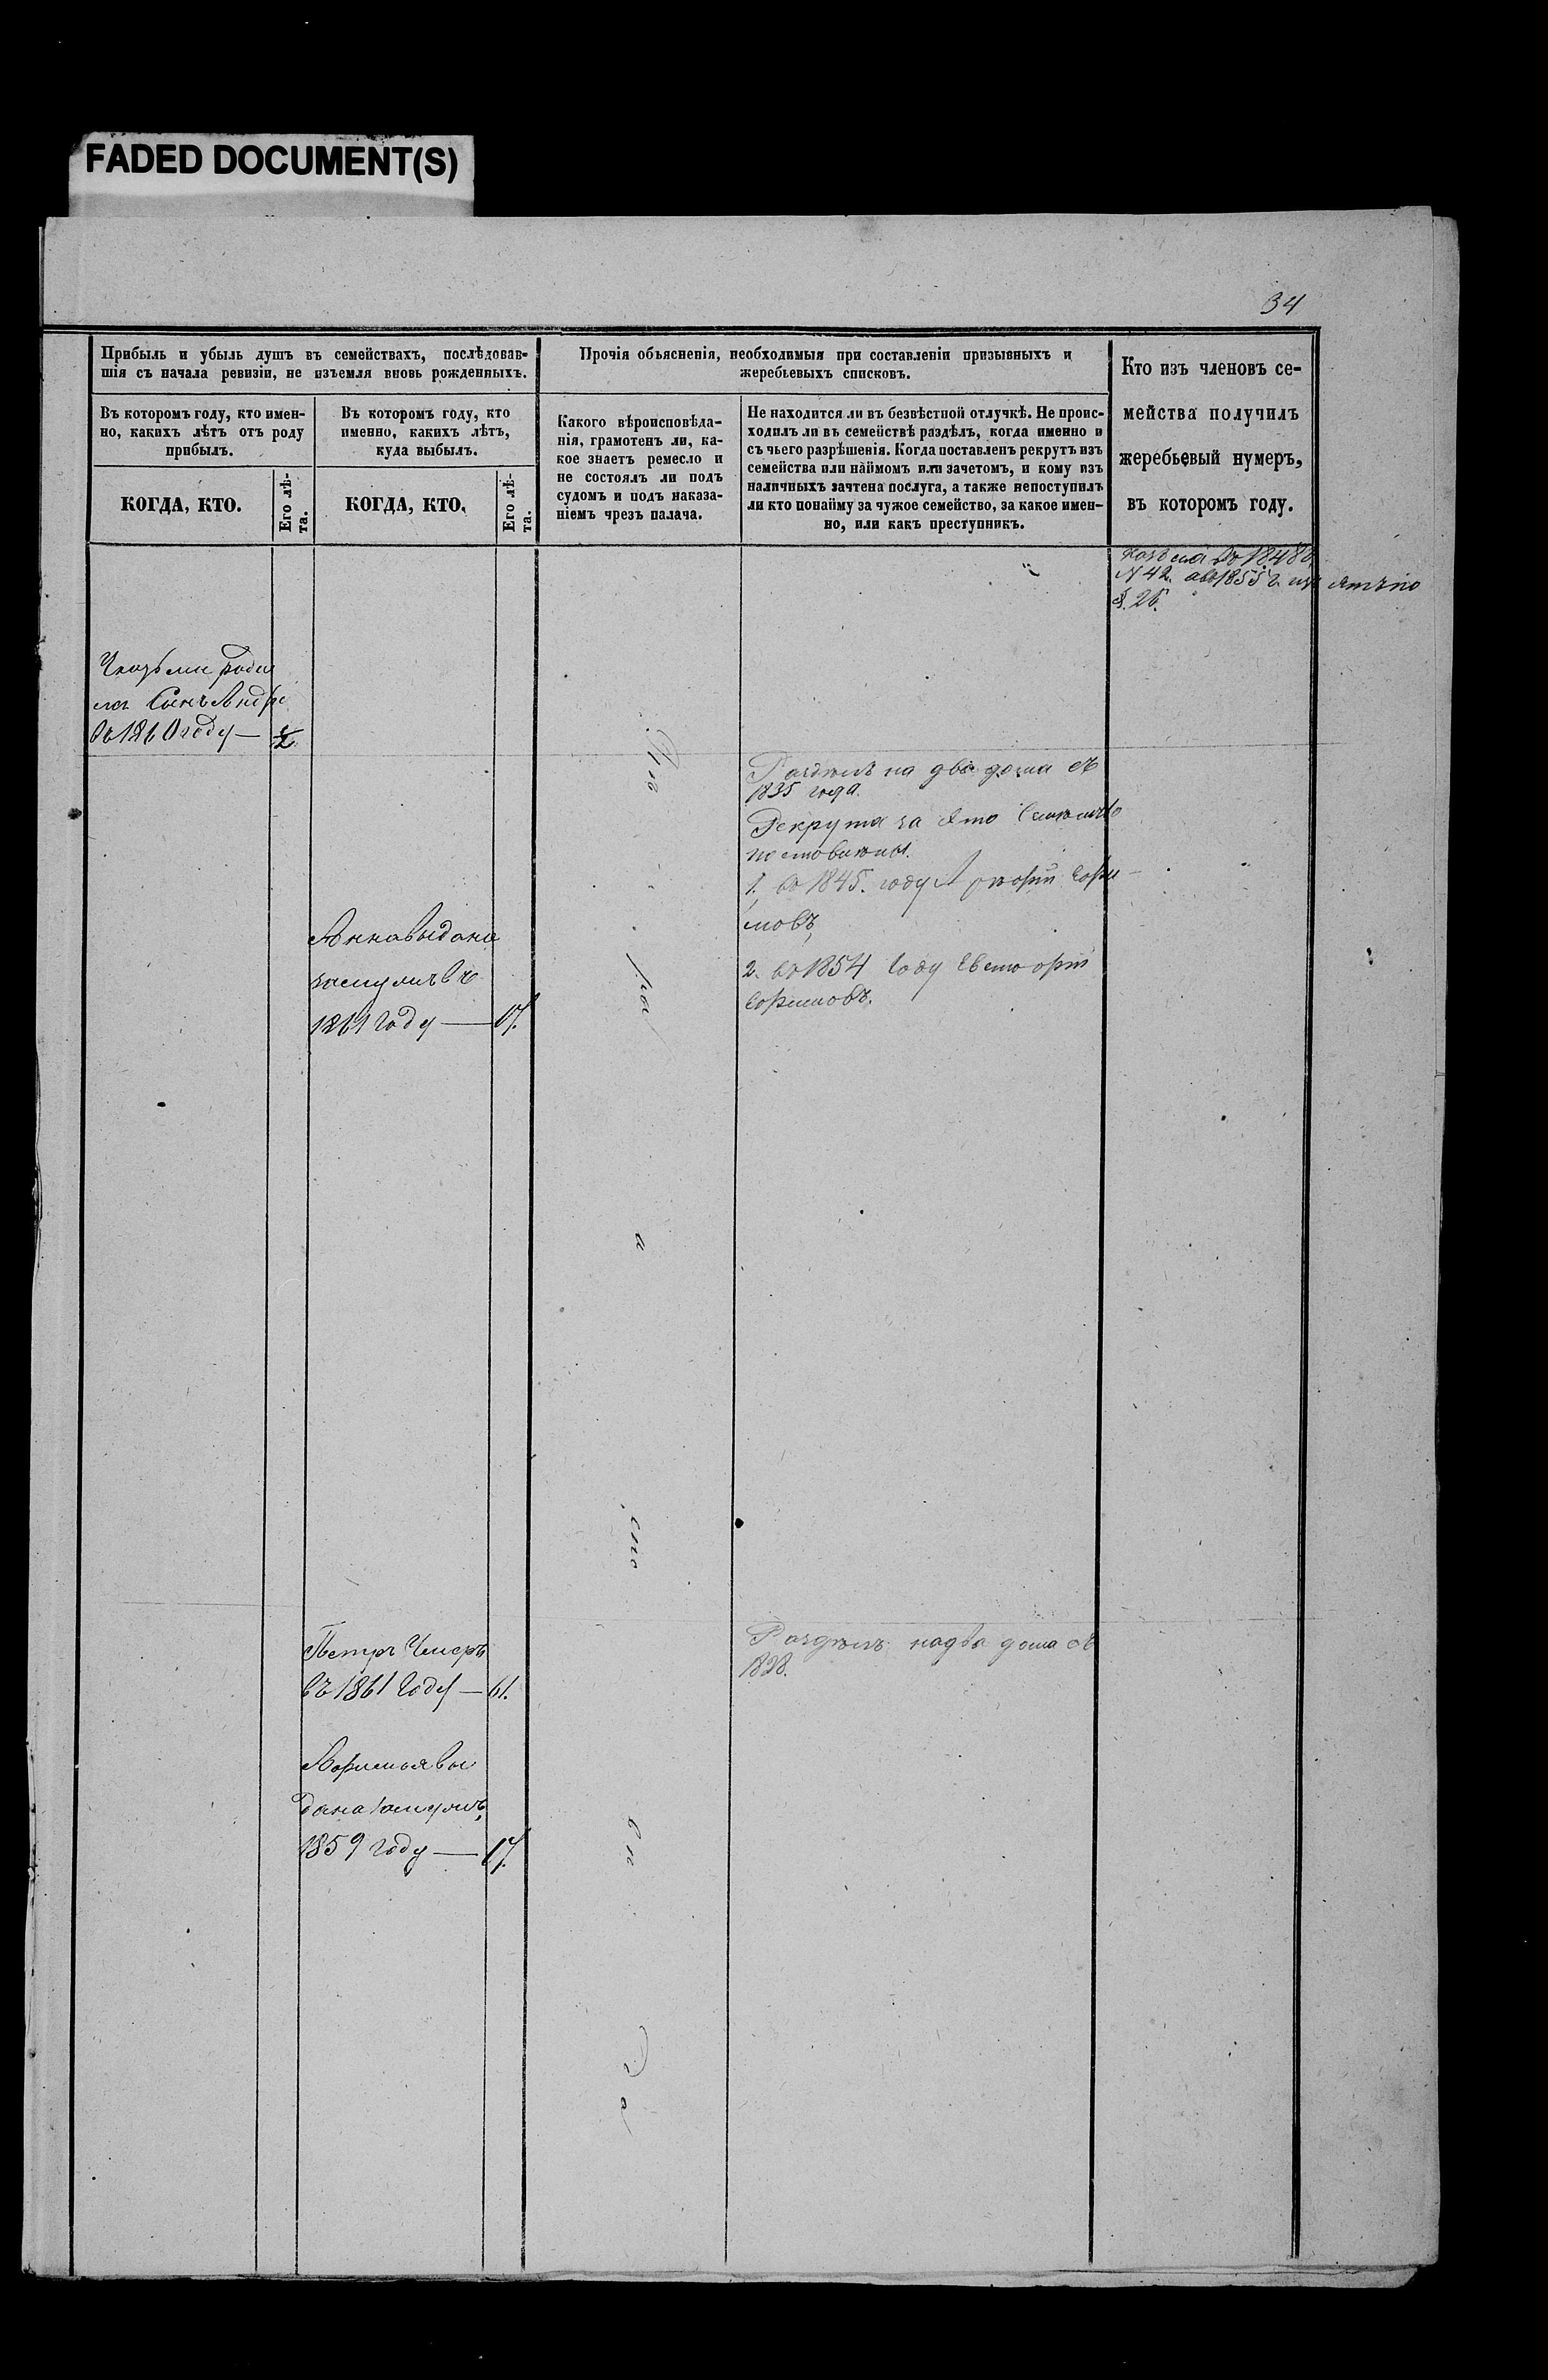 FADED DOCUMENT(S)
34
Прибыль и убыль душъ въ семействахъ, послѣдовав-
шія съ начала ревизіи, не изъемля вновь рожденныхъ.
Прочія объясненія, необходимыя при составленіи призывныхъ и
жеребьевыхъ списковъ.
Кто изъ членовъ се-
мейства получилъ
жеребьевый нумеръ,
въ которомъ году.
Въ которомъ году, кто имен-
но, какихъ лѣтъ отъ роду
прибылъ.
Въ которомъ году, кто
именно, какихъ лѣтъ,
куда выбылъ.
Какого вѣроисповѣда-
нія, грамотенъ ли, ка-
кое знаетъ ремесло и
не состоялъ ли подъ
судомъ и подъ наказа-
ніемъ чрезъ палача.
Не находится ли въ безвѣстной отлучкѣ. Не проис-
ходилъ ли въ семействѣ раздѣлъ, когда именно и
съ чьего разрѣшенія. Когда поставленъ рекрутъ изъ
семейства или наймомъ или зачетомъ, и кому изъ
наличныхъ зачтена послуга, а также непоступилъ
ли кто понайму за чужое семейство, за какое имен-
но, или какъ преступникъ.
КОГДА, КТО.
Его лѣ-
та.
КОГДА, КТО.
Его лѣ-
та.
Козьма Въ 1848
№ 42. а въ 1855 г.
№. 26.
Укозьмы роди
лся Сынъ Андре
въ 1860 году — ½
Раздѣлъ на два дома съ
1835 года.
Рекрута за это Семѣйство
поставлены.
1, въ 1845. году
2. въ 1854 году
Анна выдана
замужъ въ
1861 году — 17.
Петръ Умеръ
въ 1861 году — 61.
Раздѣлъ на два дома съ
1828.
вы
дана замужъ,
1859 году — 17.